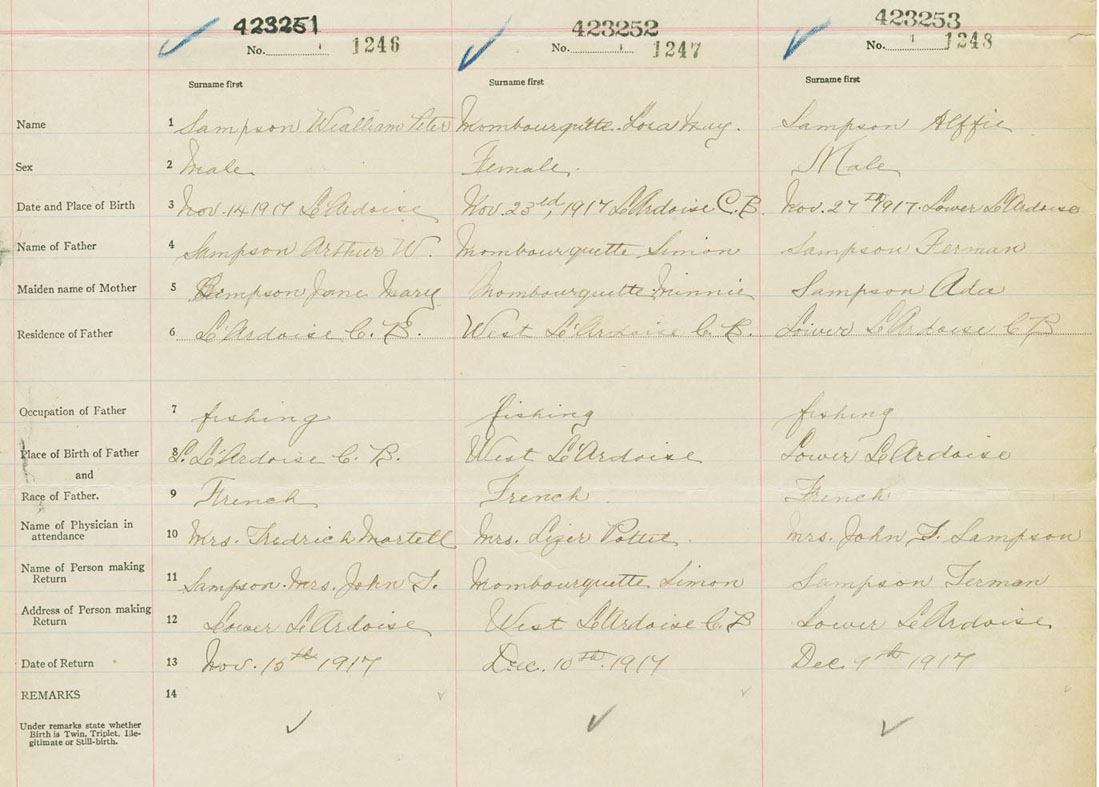 423251 423252 423253
No. 1246 No. 1247 No. 1248
Surname first Surname first Surname first
Name 1 Sampson Wialliam Peter Mombourquette. Lora May. Sampson Alffie
Sex 2 Male Female. Male
Date and Place of Birth 3 Nov. 14 1917 L'Ardoise Nov. 23ed, 1917 L'Ardoise C.B. Nov. 27th 1917. Lower L'Ardoise
Name of Father 4 Sampson Arthur W. Mombourquette Simon Sampson Ferman
Maiden name of Mother 5 Simpson Jane Mary Mombourquette Minnie Sampson Ada
Residence of Father 6 L'Ardoise C. B. West L'Ardoise C. B. Lower L'Ardoise C B
Occupation of Father 7 fishing fishing fishing
Place of Birth of Father 8 L. L'Ardoise C. B. West L'Ardoise Lower L'Ardoise
and
Race of Father. 9 French French French
Name of Physician in
attendance 10 Mrs. Fredrich Martell Mrs. Lizer Pottie. Mrs. John F. Sampson
Name of Person making
Return 11 Sampson. Mrs. John F. Mombourquette Simon Sampson Ferman
Address of Person making
Return 12 Lower L'Ardoise West L'Ardoise C. B Lower L'Ardoise
Date of Return 13 Nov. 15th 1917 Dec. 10th. 1917 Dec. 9th 1917
REMARKS 14
Under remarks state whether
Birth is Twin, Triplet, Ille-
gitimate or Still-birth.